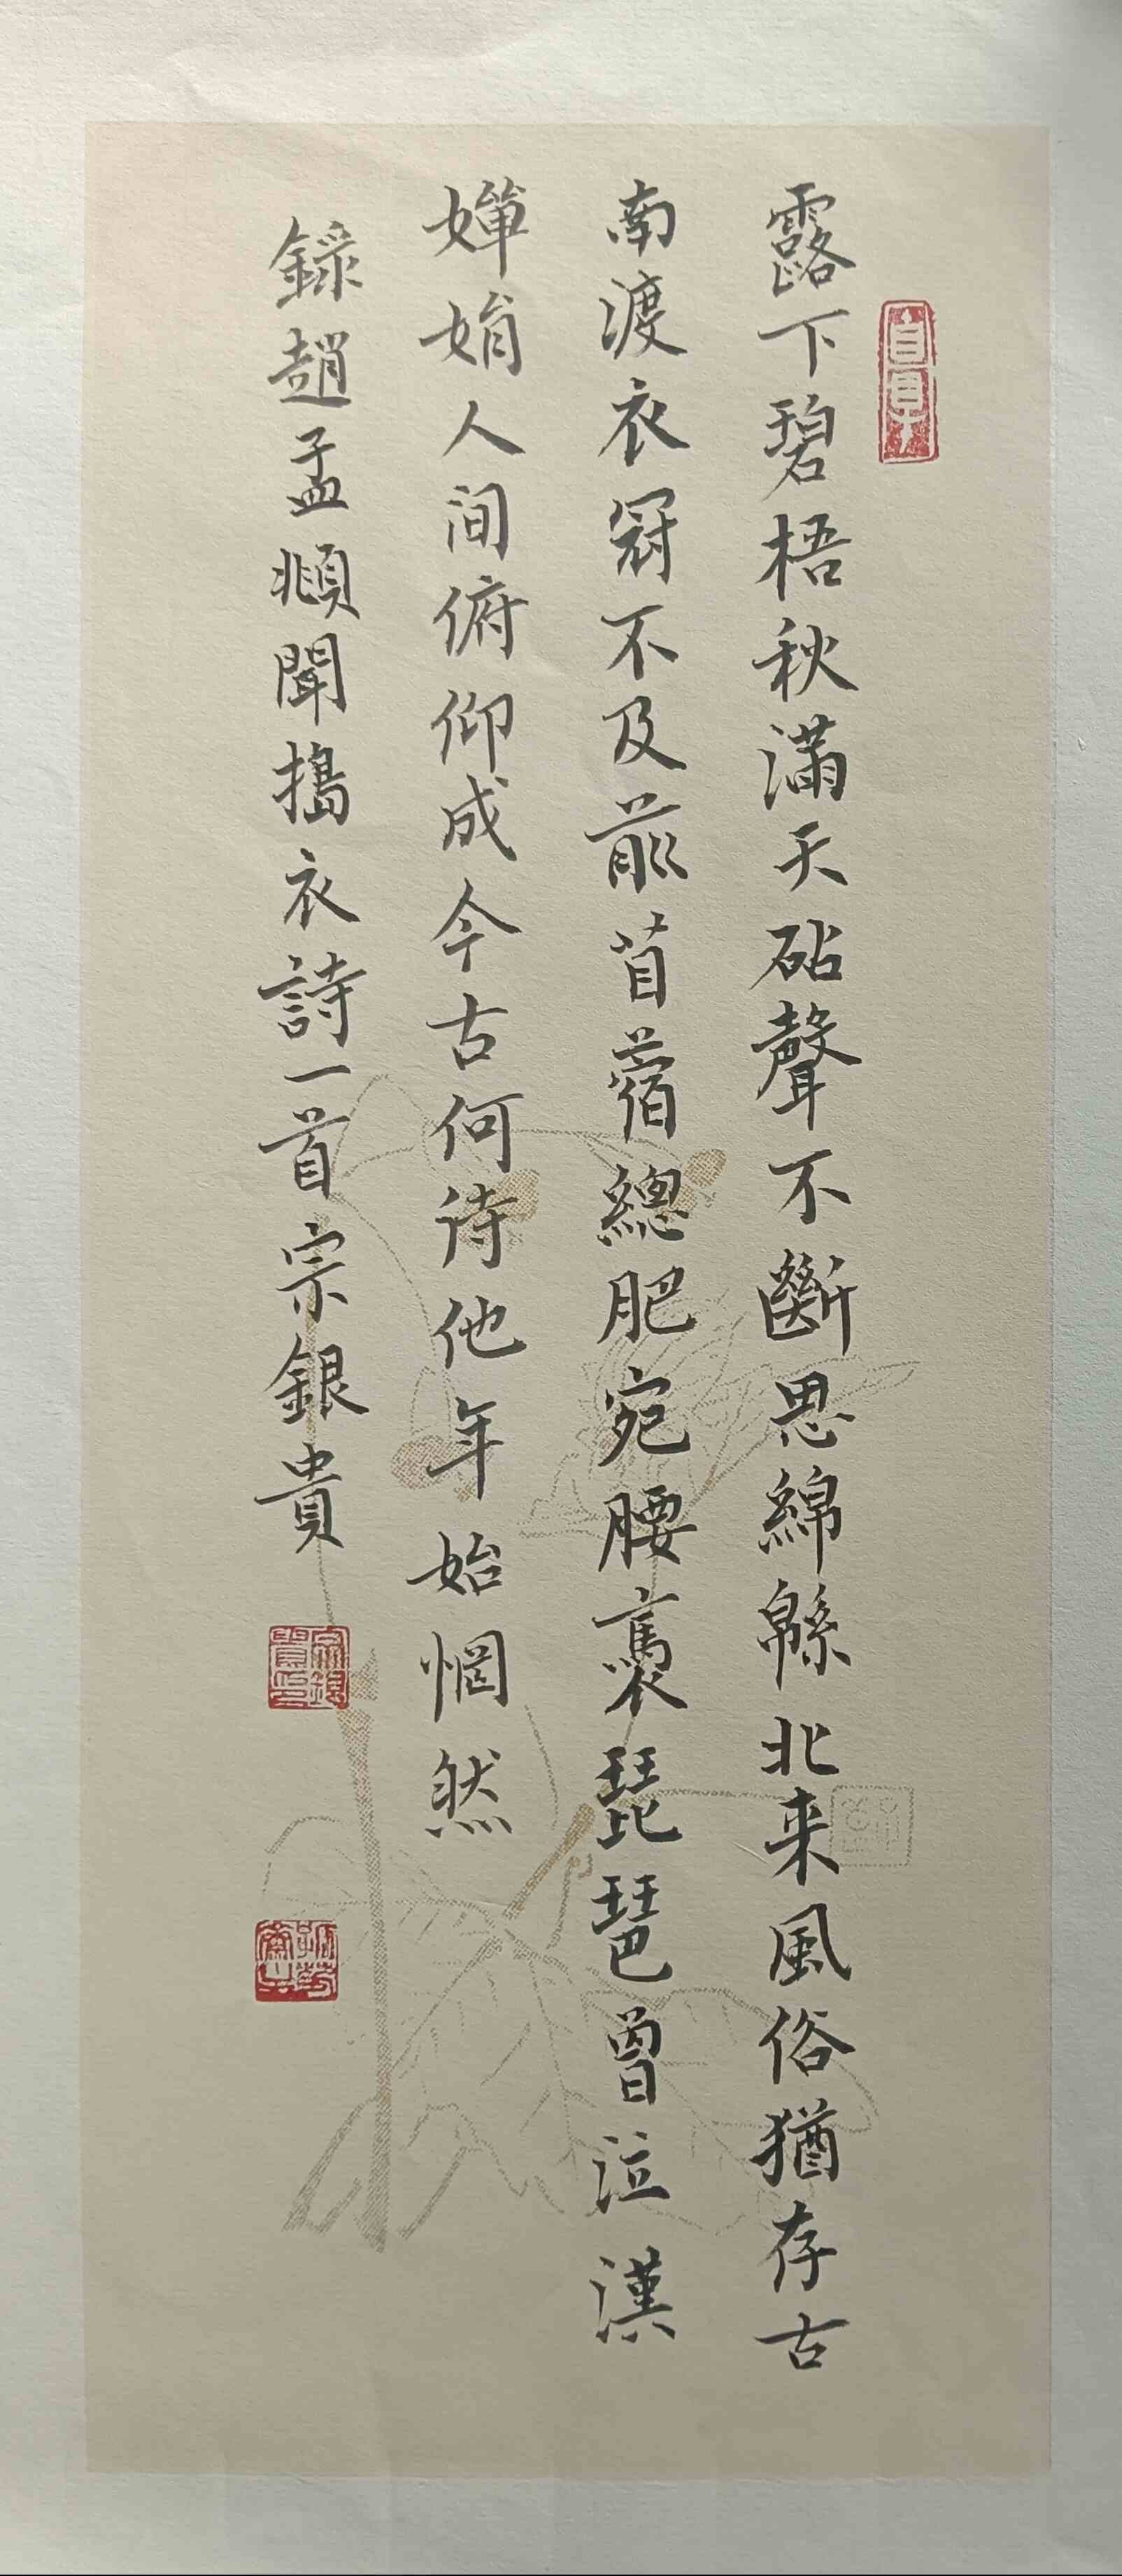 露下碧梧秋滿天砧聲不斷思綿緜北来風俗猶存古
南渡衣冠不及前苜蓿總肥宛腰褭琵琶曾泣漢
嬋娟人间俯仰成今古何待他年始惘然
録趙孟頫聞搗衣詩一首宗銀貴
宗銀貴印